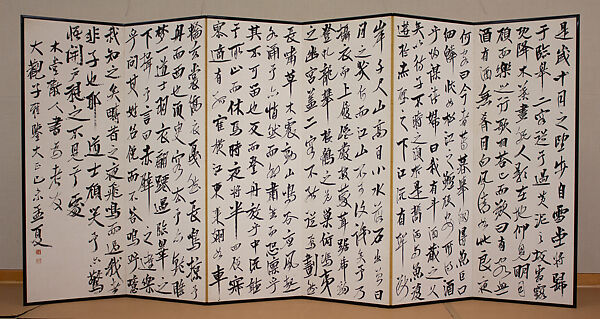 是歲十月之望步自雪堂將歸
于臨皋二客從予過黃泥之坂霜露
既降木葉盡脫人影在地仰見明月
顧而樂之行歌相答已而歎曰有客
無酒有酒無肴月白風清如此良夜
何客曰今者薄暮舉網得魚巨口
細鱗狀似松江之鱸顧安所得酒
乎歸而謀諸婦婦曰我有斗酒藏之久
矣以待子不時之須於是攜酒與魚復
遊於赤壁之下江流有聲斷
岸千尺山高月小水落石出曾日
月之幾何而江山不可復識矣予乃
攝衣而上履巉巖披蒙茸踞虎豹
登虬龍攀棲鶻之危巢俯馮夷
之幽宮蓋二客不能從焉劃然
長嘯草木震動山鳴谷應風起
水涌予亦悄然而悲肅然而恐凜乎
其不可留也反而登舟放乎中流聽
其所止而休焉時夜將半四顧寂
寥適有孤鶴橫江東來翅如車
輪玄裳縞衣戛然長鳴掠予
舟而西也須臾客去予亦就睡
夢一道士羽衣蹁躚過臨皋之
下揖予而言曰赤壁之遊樂
乎問其姓名俛而不答嗚呼噫嘻
我知之矣疇昔之夜飛鳴而過我者
非子也耶道士顧笑予亦驚
悟開戶視之不見其處
木堂散人書為老友
大觀子雅鑒大正孟夏